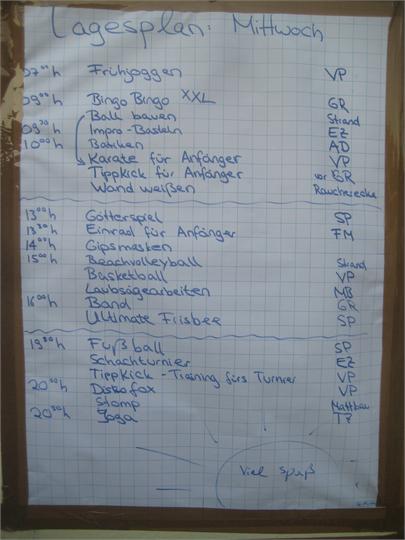 Tagesplan: Mittwoch
07⁰⁰h Frühjoggen VP
09⁰⁰h Bingo Bingo XXL GR
Ball bauen Strand
09³⁰h Impro-Basteln EZ
10⁰⁰h Batiken AD
Karate für Anfänger VP
Tippkick für Anfänger vor GR
Wand weißen Raucherecke
13⁰⁰h Götterspiel SP
13³⁰h Einrad für Anfänger FM
14⁰⁰h Gipsmasken
15⁰⁰h Beachvolleyball Strand
Basketball VP
Laubsägearbeiten MB
16⁰⁰h Band GR
Ultimate Frisbee SP
19³⁰h Fußball SP
Schachturnier EZ
Tippkick-Training fürs Turnier VP
20⁰⁰h Diskofox VP
Stomp Mattbau
20³⁰h Yoga TZ
Viel Spaß